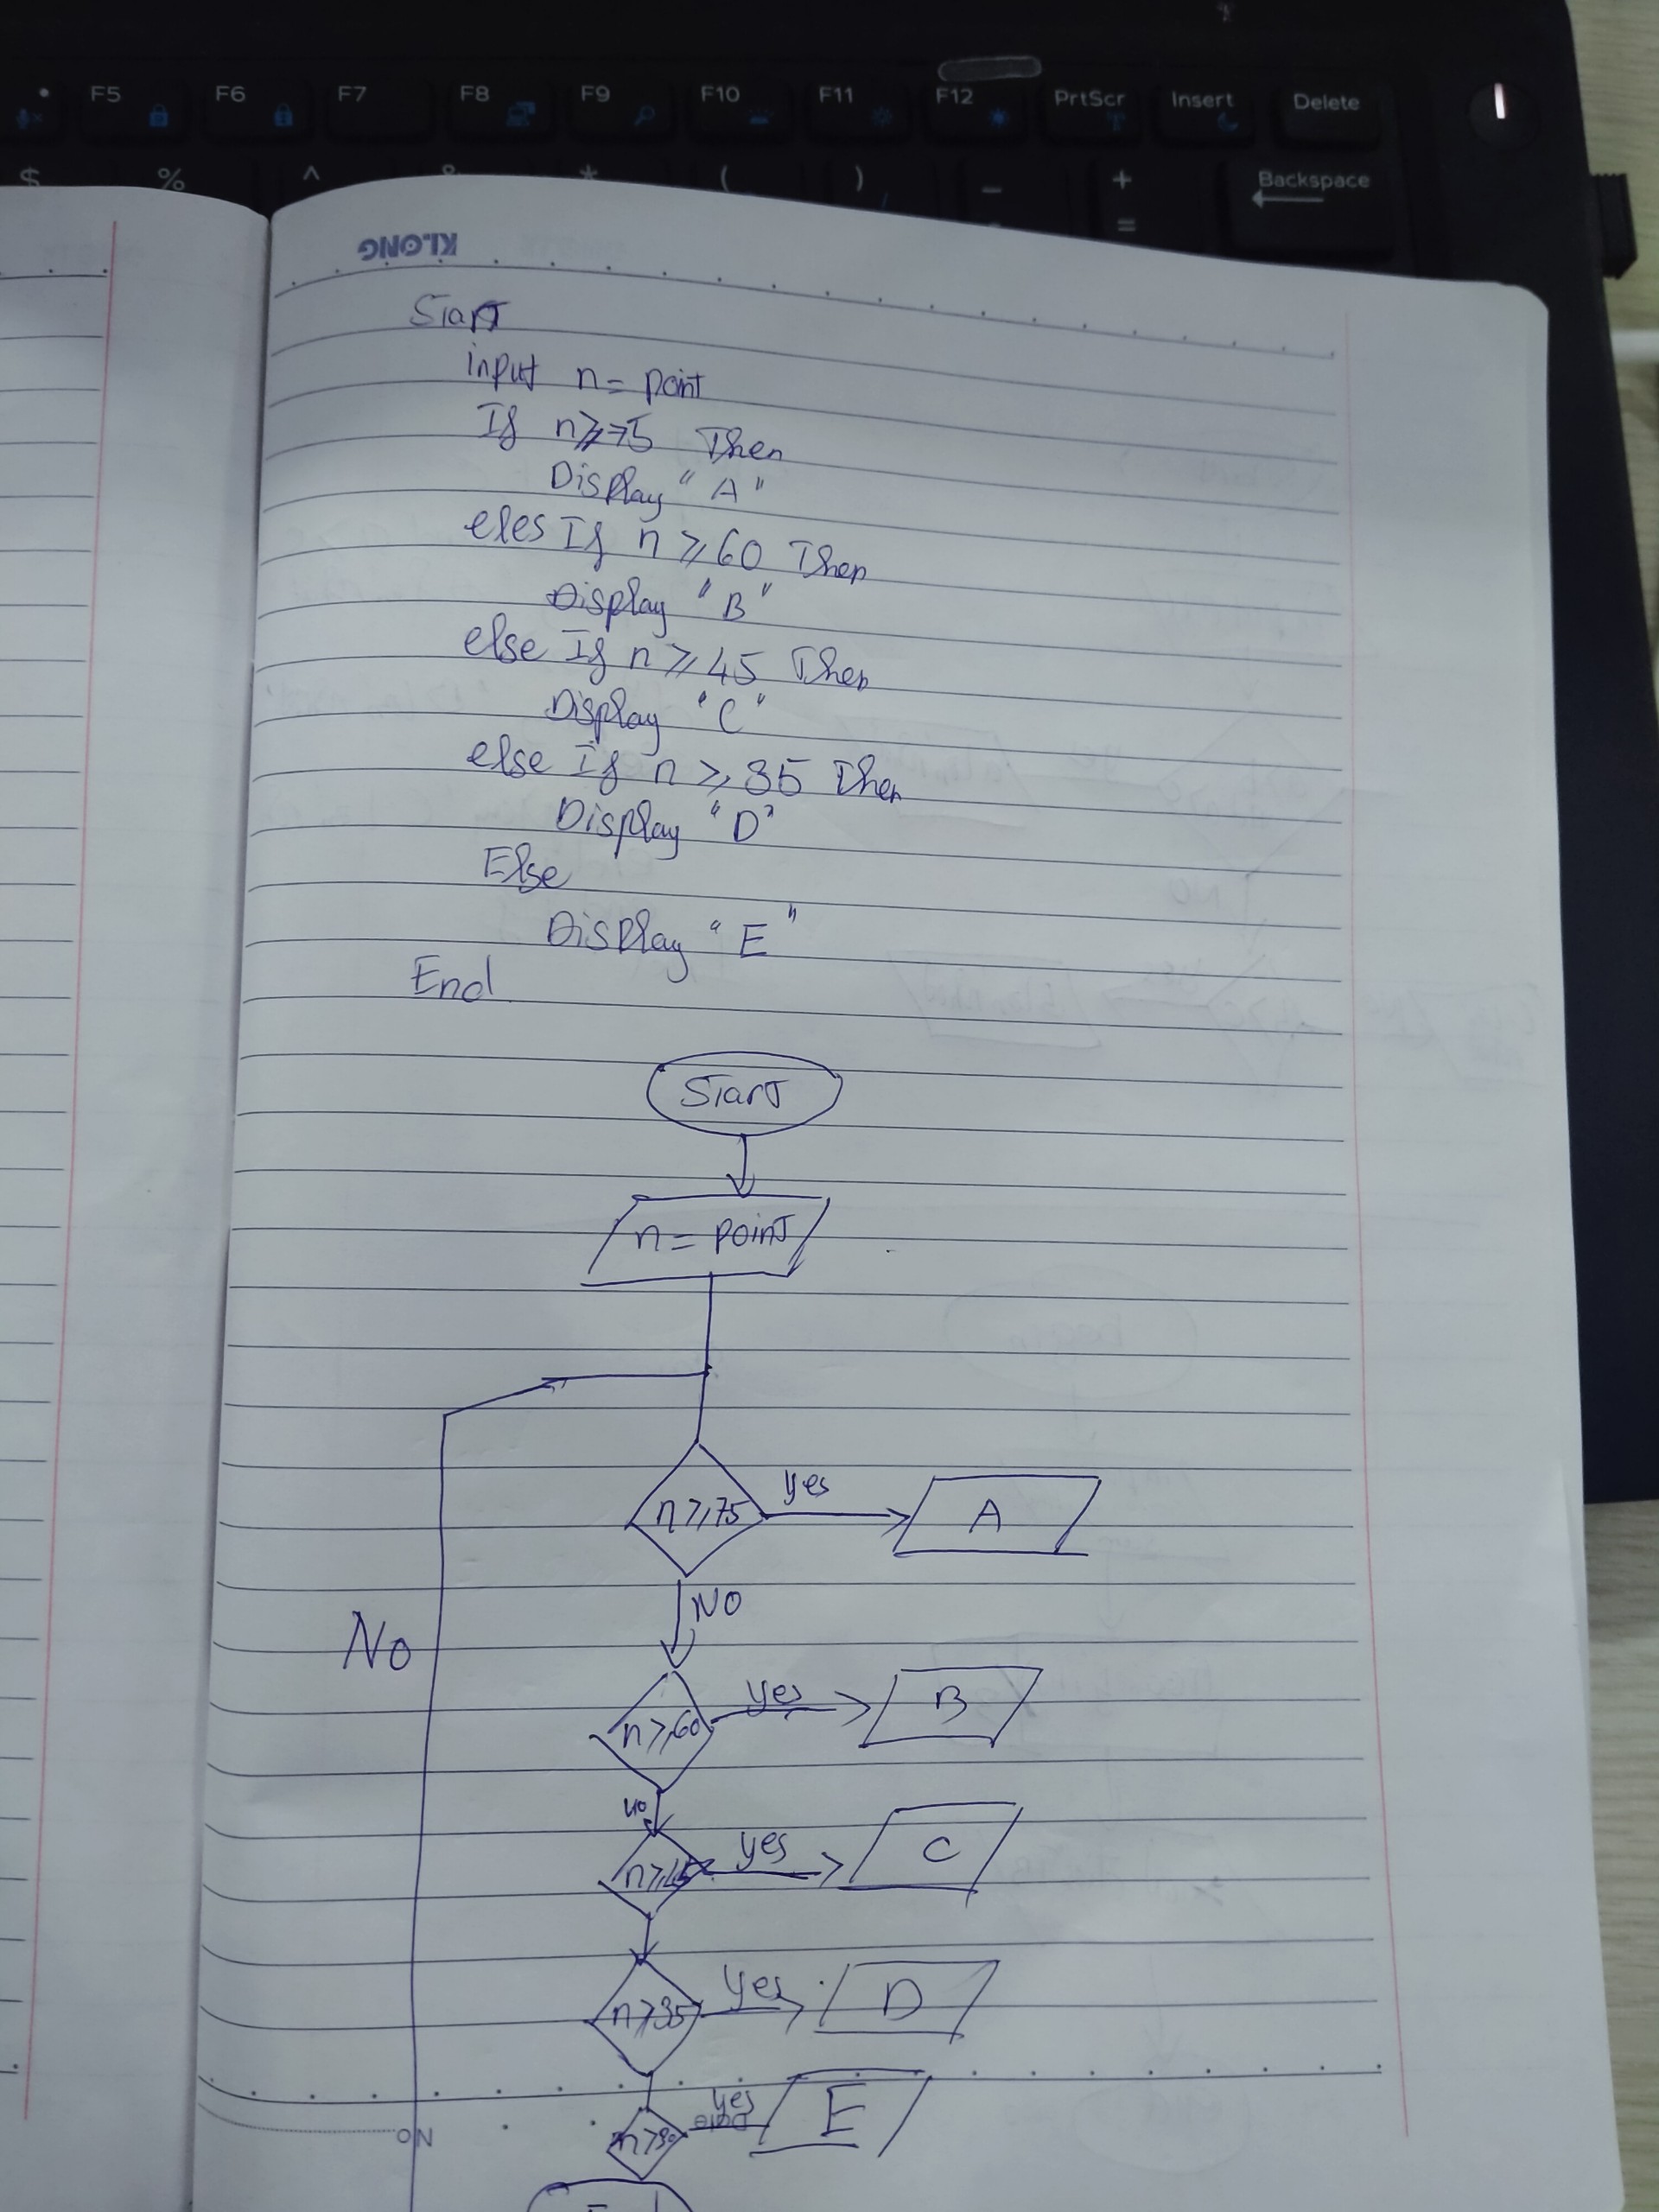 F5 F6 F7 F8 F9 F10 F11 F12 PrtScr Insert Delete
$ % ^ & * ( ) _ + Backspace
- =
KLONG
Start
input n = point
If n ≥ 75 Then
Display "A"
eles If n ≥ 60 Then
Display "B"
else If n ≥ 45 Then
Display "C"
else If n ≥ 35 Then
Display "D"
Else
Display "E"
End
Start
n = point
n ≥ 75 yes A
NO
No
n ≥ 60 yes B
no
n ≥ 45 yes C
n ≥ 35 yes D
yes E
Date
No
End